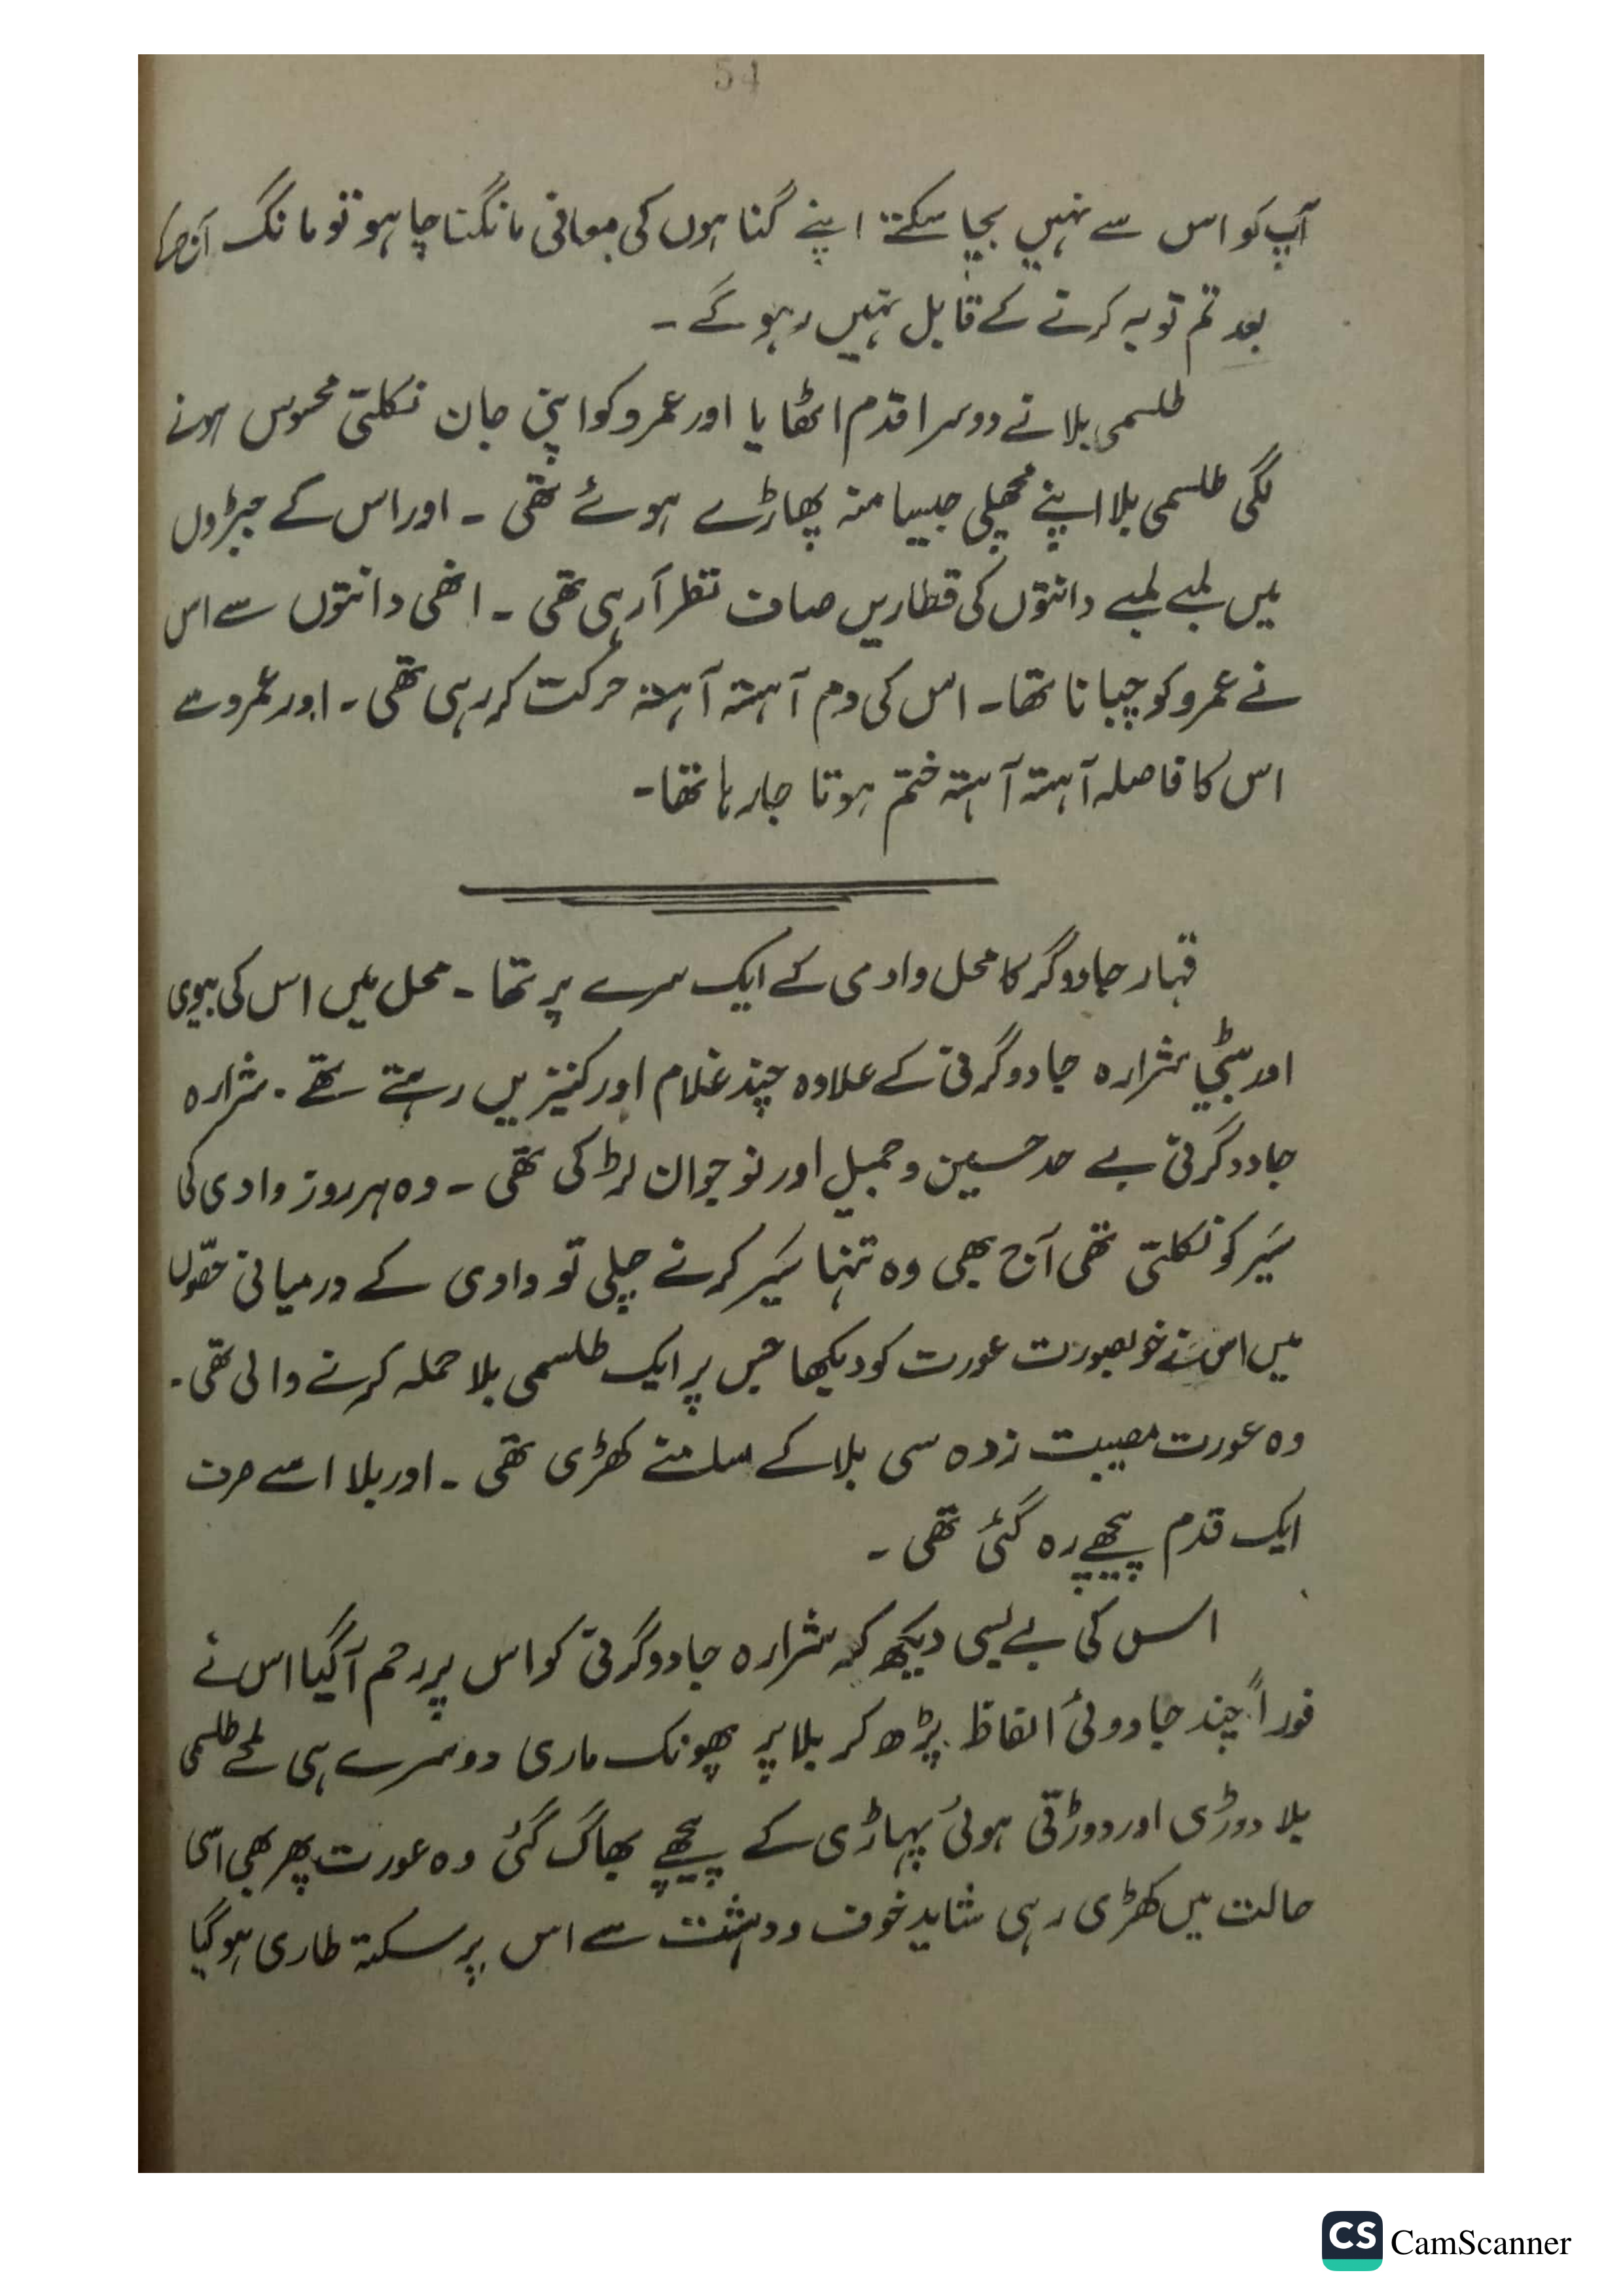 54
آپ کو اس سے نہیں بچا سکتے اپنے گناہوں کی معافی مانگنا چاہو تو مانگ
بعد تم توبہ کرنے کے قابل نہیں رہو گے ۔
طلسمی بلا نے دوسرا قدم اٹھایا اور عمرو کو اپنی جان نکلتی محسوس ہونے
لگی طلسمی بلا اپنے مچھلی جیسا منہ پھاڑے ہوئے تھی ۔ اور اس کے جبڑوں
میں لمبے لمبے دانتوں کی قطاریں صاف نظر آرہی تھی ۔ انھی دانتوں سے اس
نے عمرو کو چبانا تھا ۔ اس کی دم آہستہ آہستہ حرکت کر رہی تھی ۔ اور عمرو سے
اس کا فاصلہ آہستہ آہستہ ختم ہوتا جا رہا تھا ۔
قہار جادوگر کا محل وادی کے ایک سرے پر تھا ۔ محل میں اس کی بیوی
اور بیٹی شرارہ جادوگرنی کے علاوہ چند غلام اور کنیزیں رہتے تھے ۔ شرارہ
جادوگرنی بے حد حسین و جمیل اور نوجوان لڑکی تھی ۔ وہ ہر روز وادی کی
سَیر کو نکلتی تھی آج بھی وہ تنہا سَیر کرنے چلی تو وادی کے درمیانی حصّوں
میں اس نے خوبصورت عورت کو دیکھا جس پر ایک طلسمی بلا حملہ کرنے والی تھی ۔
وہ عورت مصیبت زدہ سی بلا کے سامنے کھڑی تھی ۔ اور بلا اسے صرف
ایک قدم پیچھے رہ گئی تھی ۔
اس کی بے بسی دیکھ کر شرارہ جادوگرنی کو اس پر رحم آگیا اس نے
فوراً چند جادوئی الفاظ پڑھ کر بلا پر پھونک ماری دوسرے ہی لمحے طلسمی
بلا دوڑی اور دوڑتی ہوئی پہاڑی کے پیچھے بھاگ گئی وہ عورت پھر بھی اسی
حالت میں کھڑی رہی شاید خوف و دہشت سے اس پر سکتہ طاری ہو گیا
CS CamScanner